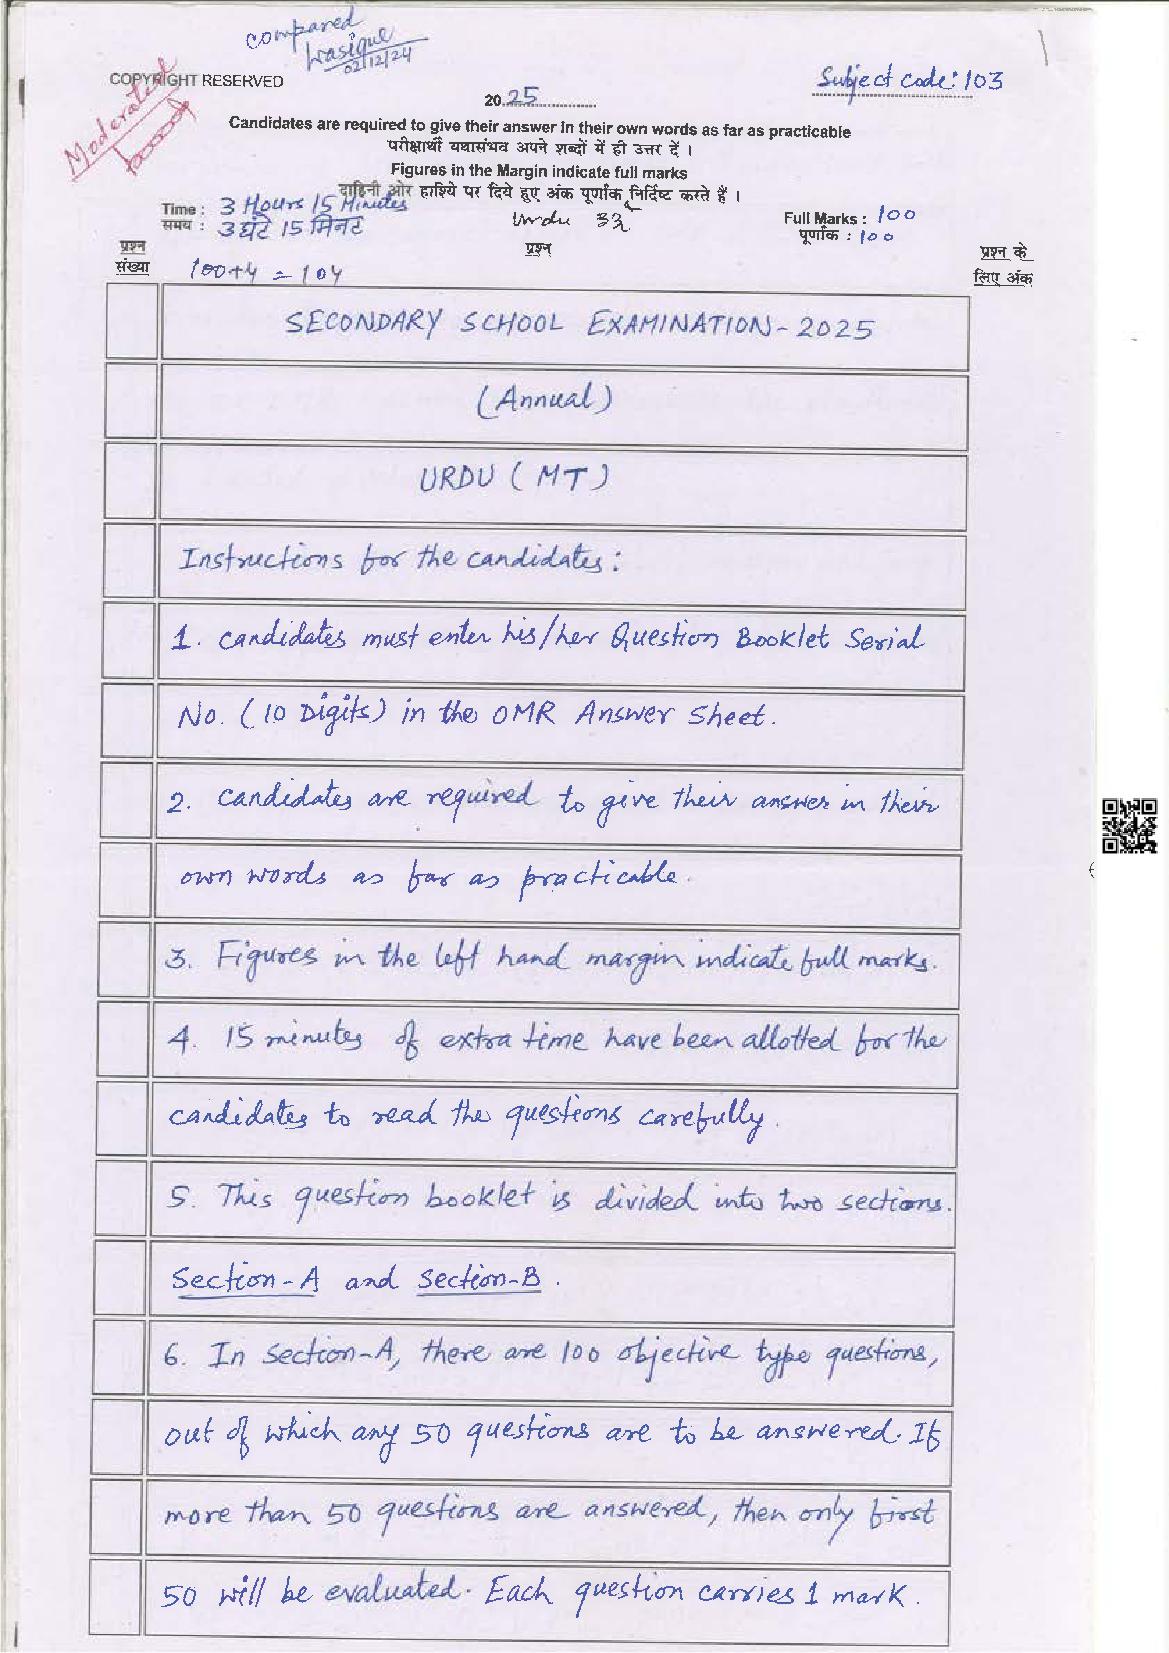 compared
Wasique
02/12/24
Moderated
COPYRIGHT RESERVED
Subject code: 103
2025
Candidates are required to give their answer in their own words as far as practicable
परीक्षार्थी यथासंभव अपने शब्दों में ही उत्तर दें ।
Figures in the Margin indicate full marks
दाहिनी ओर हाशिये पर दिये हुए अंक पूर्णांक निर्दिष्ट करते हैं ।
Time : 3 Hours 15 Minutes
समय : 3 घंटे 15 मिनट
Urdu
Full Marks : 100
पूर्णांक : 100
प्रश्न संख्या
प्रश्न
प्रश्न के लिए अंक
100+4 = 104
SECONDARY SCHOOL EXAMINATION - 2025
(Annual)
URDU ( MT )
Instructions for the candidates :
1. candidates must enter his/her Question Booklet Serial
No. ( 10 Digits ) in the OMR Answer Sheet.
2. candidates are required to give their answer in their
own words as far as practicable.
3. Figures in the left hand margin indicate full marks.
4. 15 minutes of extra time have been allotted for the
candidates to read the questions carefully.
5. This question booklet is divided into two sections.
Section-A and Section-B.
6. In Section-A, there are 100 objective type questions,
out of which any 50 questions are to be answered. If
more than 50 questions are answered, then only first
50 will be evaluated. Each question carries 1 mark.